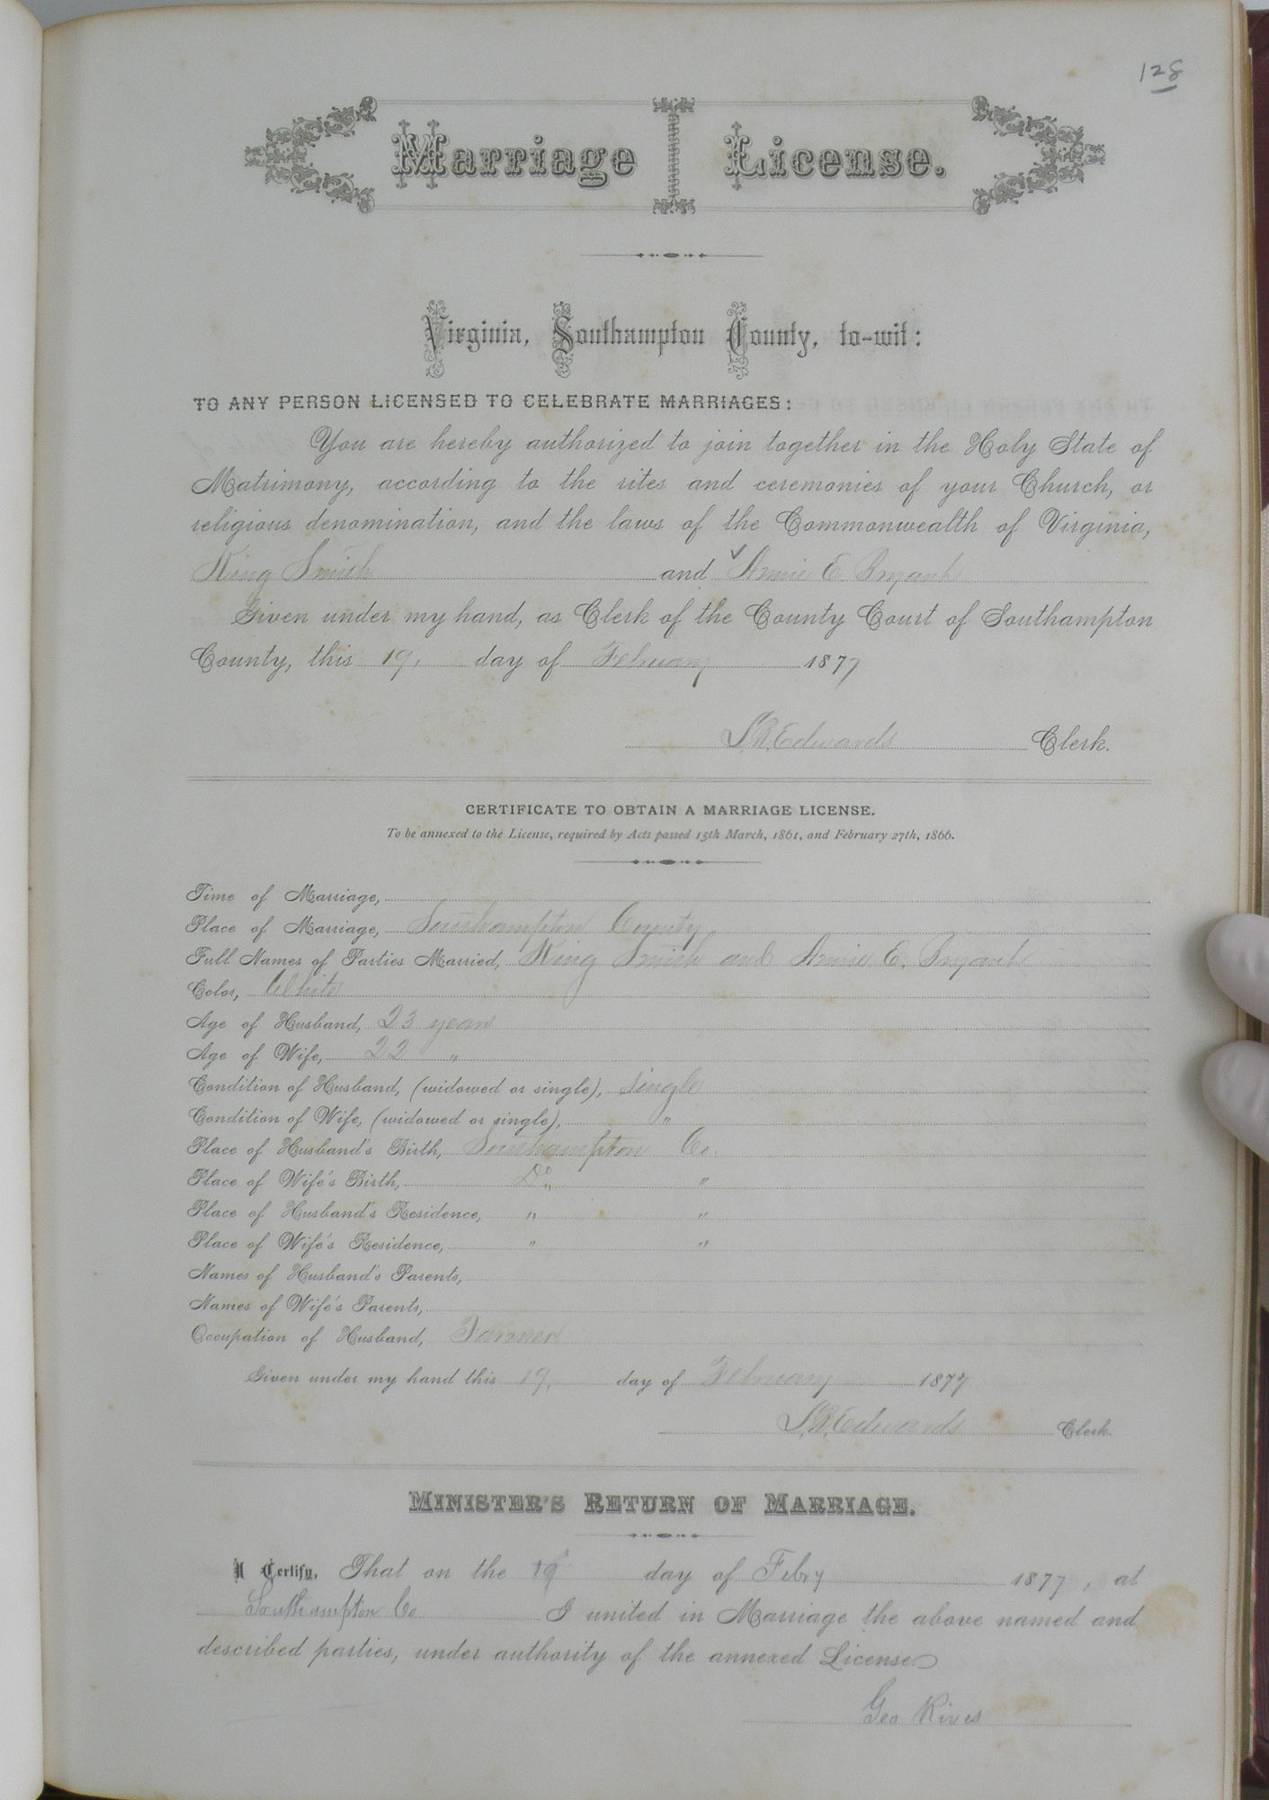 128
Marriage License.
Virginia, Southampton County, to-wit:
TO ANY PERSON LICENSED TO CELEBRATE MARRIAGES:
You are hereby authorized to join together in the Holy State of
Matrimony, according to the rites and ceremonies of your Church, or
religious denomination, and the laws of the Commonwealth of Virginia,
King Smith and Annie E. Bryant
Given under my hand, as Clerk of the County Court of Southampton
County, this 19, day of February 1877
L.R. Edwards Clerk.
CERTIFICATE TO OBTAIN A MARRIAGE LICENSE.
To be annexed to the License, required by Acts passed 15th March, 1861, and February 27th, 1866.
Time of Marriage,
Place of Marriage, Southampton County
Full Names of Parties Married, King Smith and Annie E. Bryant
Color, White
Age of Husband, 23 years
Age of Wife, 22 "
Condition of Husband, (widowed or single), single
Condition of Wife, (widowed or single), "
Place of Husband's Birth, Southampton Co.
Place of Wife's Birth, Do. "
Place of Husband's Residence, " "
Place of Wife's Residence, " "
Names of Husband's Parents,
Names of Wife's Parents,
Occupation of Husband, Farmer
Given under my hand this 19, day of February 1877
L.R. Edwards Clerk.
MINISTER'S RETURN OF MARRIAGE.
I Certify, That on the 19 day of Feb'ry 1877, at
Southampton Co I united in Marriage the above named and
described parties, under authority of the annexed License.
Geo Rives